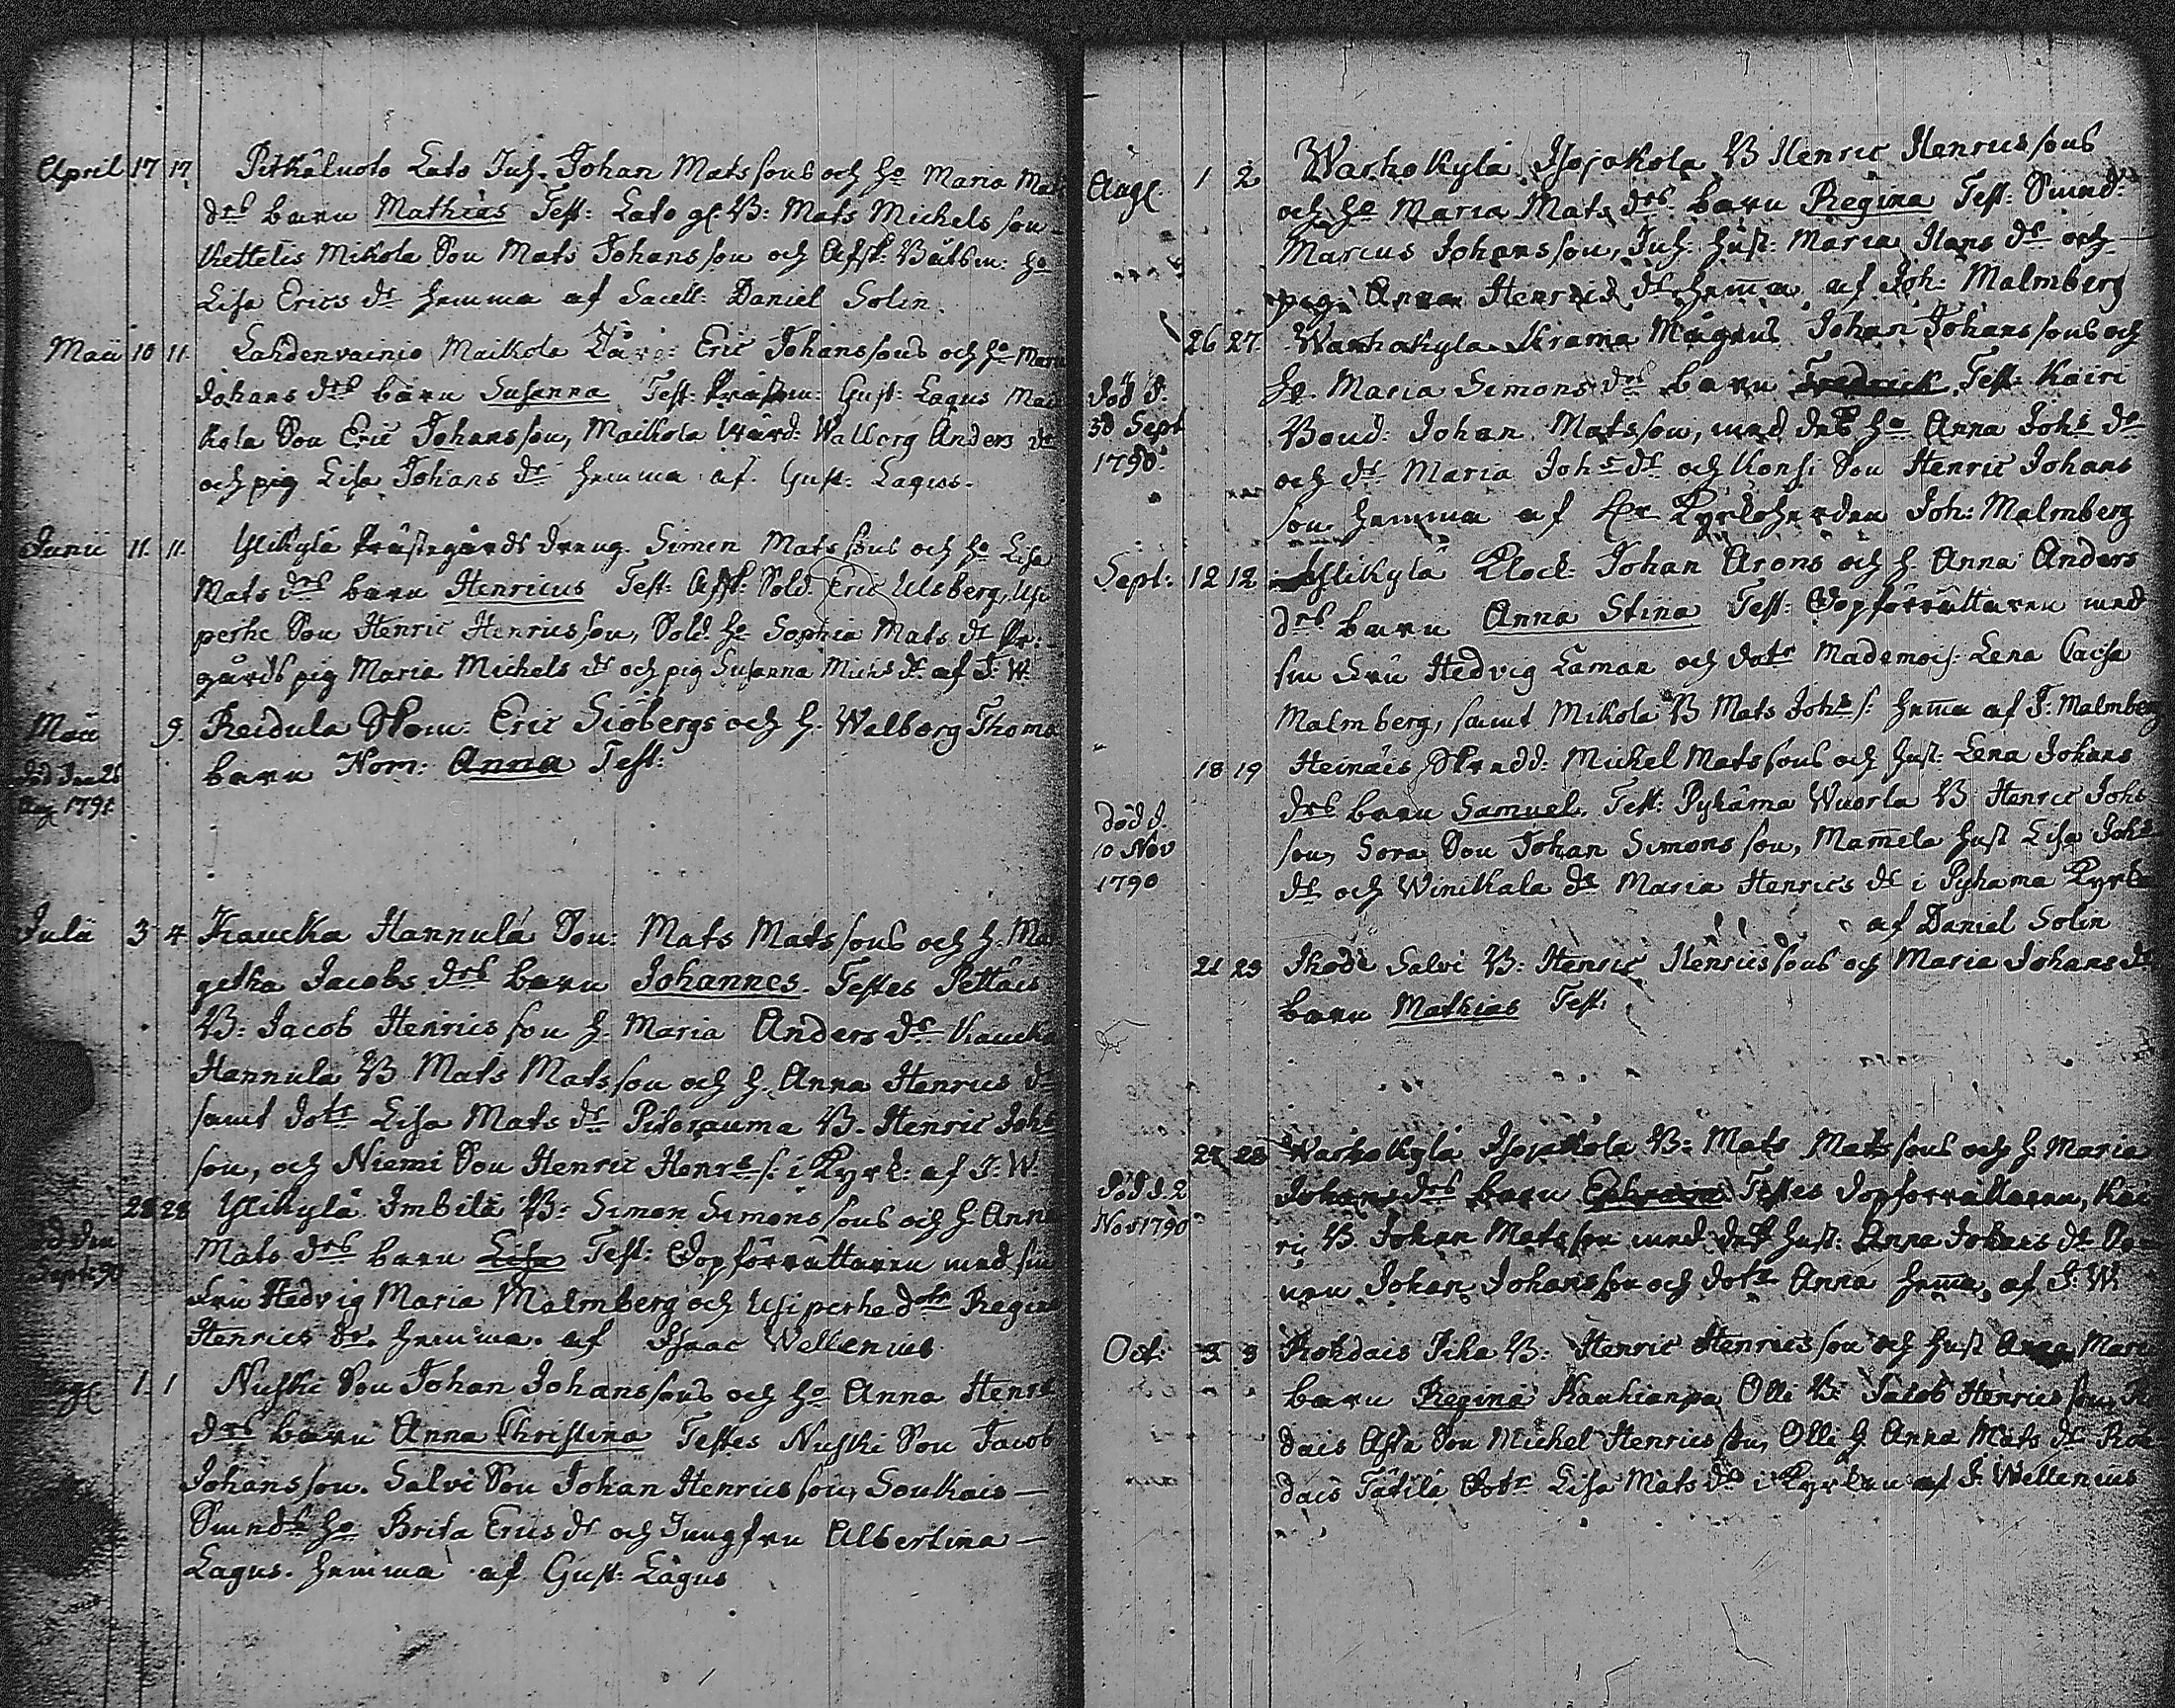 April 17 17. Pitkäluoto Lato Inh. Johan Matssons och ho Maria Mats
drs barn Mathias Test: Lato gl: B: Mats Michelsson
Kettelis Mikola Son Mats Johansson och Afsk: Båtsm: ho
Lisa Erics dr hemma af Sacell: Daniel Solin.
Maii 10 11. Lahdenvainio Maikola Eric Johanssons och ho Maria
Johans drs barn Susanna Test: Gust: Lagus Mai
kola Son Eric Johansson, Maikola Wärd: Walborg Anders dr
och pig Lisa Johans dr hemma af. Gust: Lagus.
Junii 11. 11. Ylikylä Prästegårds dreng. Simon Matssons och ho Lisa
Mats drs barn Henricus Test: Afsk: Sold: Eric Ulsberg, Usi
perhe Son Henric Henricsson, Sold. ho Sophia Mats dr Pr:
gårds pig Maria Michels dr och pig Susanna Michs dr af I. W.
Maii 9. Reidula Skom: Eric Siöbergs och h. Walborg Thoms
död den 28 barn Nom: Anna Test:
Aug 1791
Julii 3 4 Kaucka Hannula Son: Mats Matssons och h. Mar
getha Jacobs drs barn Johannes. Testes Pettäis
B: Jacob Henricsson h. Maria Anders dr Kaucka
Hannula B Mats Matsson och h. Anna Henrics dr
samt dotr Lisa Mats dr Pitorauma B. Henric Johs
son, och Niemi Son Henric Henrs s: i Kyrk: af I: W.
28 28 Ylikylä Imbilä B: Simon Simonssons och h Anna
död den Mats drs barn Lisa Test: Dopförrättaren med sin
Sept: 90 Fru Hedvig Maria Malmberg och Usiperhe dotr Regina
Henrics dr. hemma. af Isaac Wellenius.
1. 1 Nuski Son Johan Johanssons och ho Anna Henrs
drs barn Anna Christina Testes Nuski Son Jacob
Johansson. Salvi Son Johan Henricsson, Soukais —
Smeds ho Brita Erics dr och Jungfru Albertina —
Lagus. hemma af Gust: Lagus
Aug. 1 2 Warhokylä Isojokola B Henric Henricssons
och ho Maria Mats drs barn Regina Test: Smed:
Marcus Johansson, Inh: hust: Maria Hans dr och —
pig: Anna Henrics dr hemma af Joh: Malmberg
26 27. Warhokylä Krama Mågens Johan Johanssons och
ho. Maria Simons drs barn Fredrick. Test: Kairi
död d.
30 Sept Bond: Johan Matsson, med dess ho Anna Johs dr
1790. och dr Maria Johs dr och Konsi Son Henric Johans
son hemma af Hr Kyrkoherden Joh: Malmberg
Sept: 12 12 Ylikylä Klock: Johan Arons och h. Anna Anders
drs barn Anna Stina Test: Dopförrättaren med
sin Fru Hedvig Laman och dotr Mademois: Lena Caisa
Malmberg, samt Mikola B Mats Johs s: hema af J: Malmberg
18 19 Heinäis Skredd: Michel Matssons och hust: Lena Johans
död d. drs barn Samuel. Test: Pyhäma Wuorla B Henric Johs
10 Nov son, Sora Son Johan Simonsson, Mamela hust Lisa Johs
1790 dr och Winikala dr Maria Henrics dr i Pyhama Kyrka
af Daniel Solin
21 23 Ikodi Salvi B: Henric Henricssons och Maria Johans dr
barn Mathias Test:
27 28 Warhokylä Isojokola B: Mats Matssons och h Maria
död d. 2 Johans drs barn Ephraim Testes dopförrättaren, Kai
Nov 1790 ri B Johan Matsson med dess hust: Anna Johans dr So
nen Johan Johansson och dotr Anna hema, af I. W
Oct: 3 3 Rohdais Iiha B: Henric Henricsson och hust Anna Maria
barn Regina Kauhianpa Olli B: Jacob Henricsson, Ro
dais Asta Son Michel Henricsson, Olli h Anna Mats dr Roh
dais Tätilä Dotr Lisa Mats dr i Kyrkan af I. Wellenius